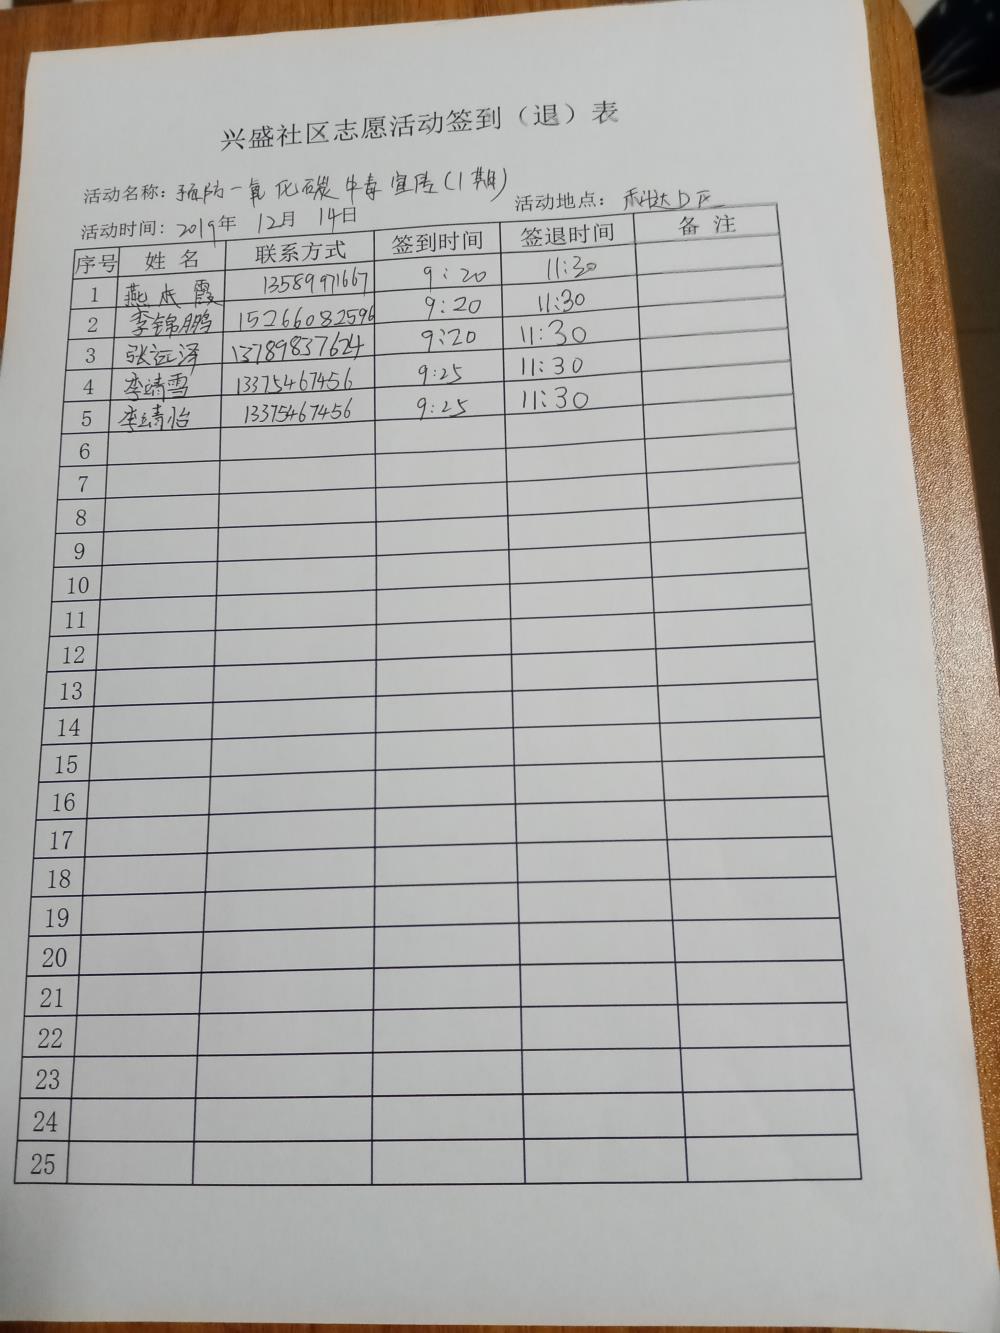 兴盛社区志愿活动签到（退）表
活动名称：预防一氧化碳中毒宣传(1期)
活动时间：2019年 12月 14日 活动地点：科达D区
序号 姓名 联系方式 签到时间 签退时间 备注
1 燕 霞 13589971667 9:20 11:30
2 李锦鹏 15266082596 9:20 11:30
3 张远泽 13789837624 9:20 11:30
4 李靖雪 13375467456 9:25 11:30
5 李靖怡 13375467456 9:25 11:30
6
7
8
9
10
11
12
13
14
15
16
17
18
19
20
21
22
23
24
25